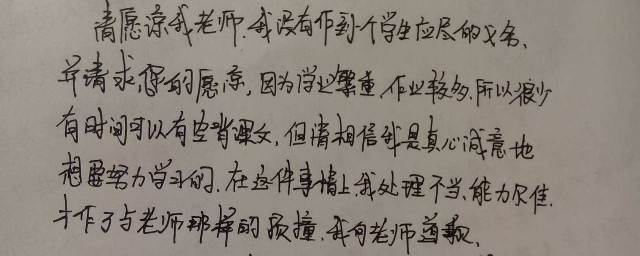 请愿谅我老师.我没有作到个学生应尽的义务、
并请求您的愿凉,因为学业繁重,作业较多.所以很少
有时间可以有空背课文,但请相信我是真心诚意地
想要努力学习的.在这件事情上.我处理不当.能力欠佳.
才作了与老师那样的顶撞.我向老师道歉.